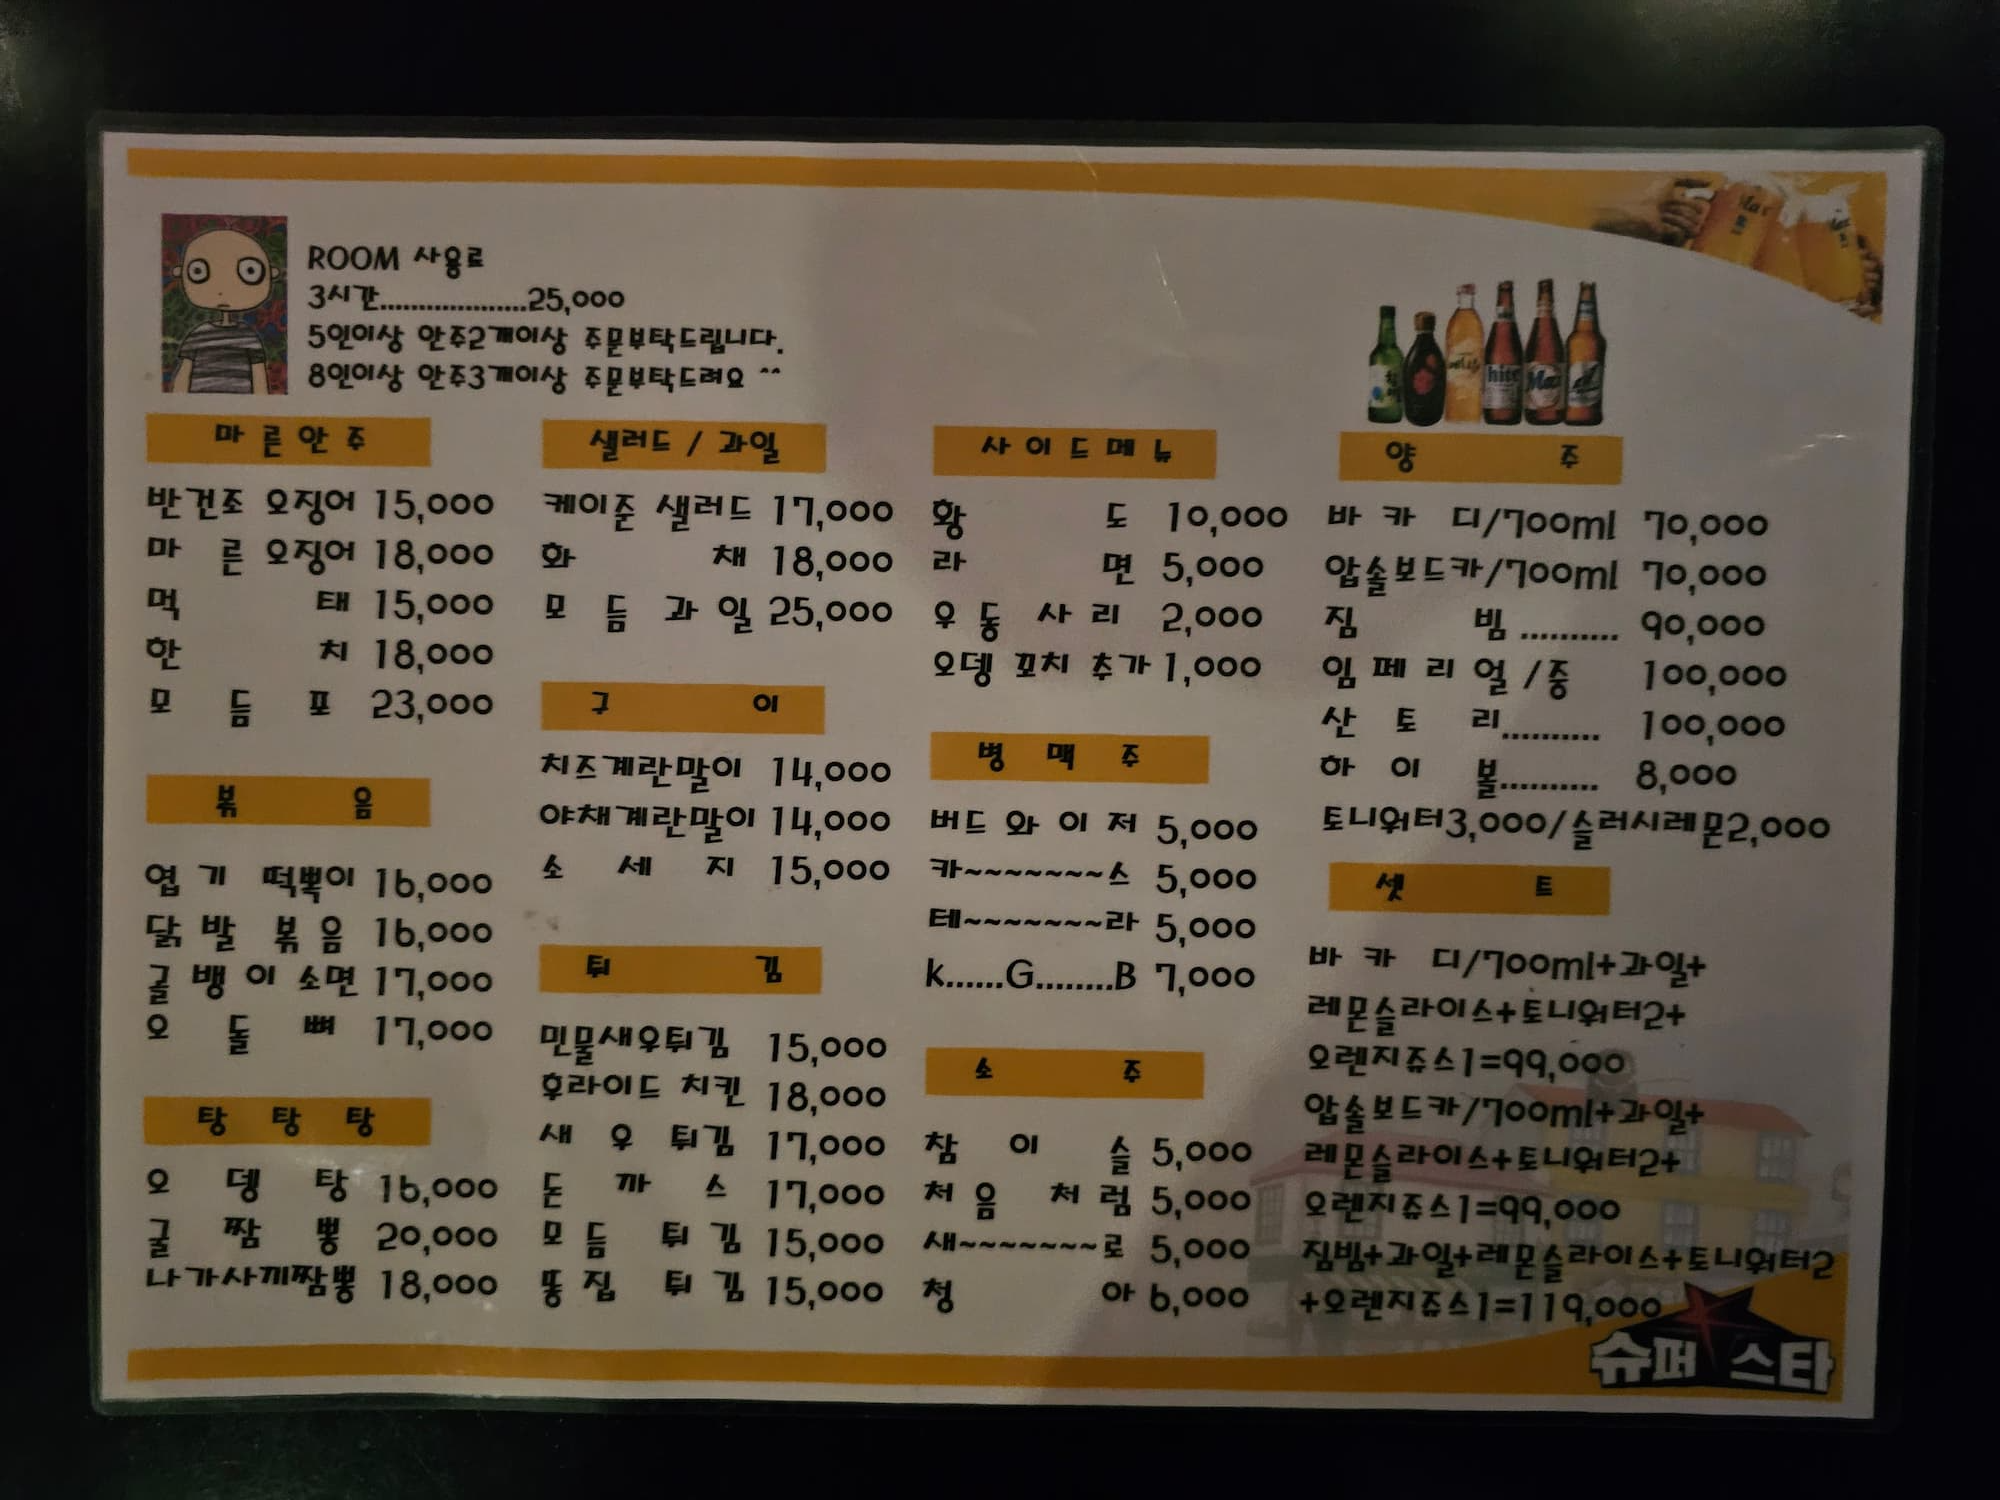 ROOM 사용료
3시간...................25,000
5인이상 안주2개이상 주문부탁드립니다.
8인이상 안주3개이상 주문부탁드려요 ^^
마른안주
반건조 오징어 15,000
마른 오징어 18,000
먹태 15,000
한치 18,000
모듬포 23,000
볶음
엽기 떡뽁이 16,000
닭발 볶음 16,000
골뱅이 소면 17,000
오돌뼈 17,000
탕탕탕
오뎅탕 16,000
굴짬뽕 20,000
나가사끼짬뽕 18,000
샐러드/과일
케이준 샐러드 17,000
화채 18,000
모듬과일 25,000
구이
치즈계란말이 14,000
야채계란말이 14,000
소세지 15,000
튀김
민물새우튀김 15,000
후라이드 치킨 18,000
새우 튀김 17,000
돈까스 17,000
모듬 튀김 15,000
똥집 튀김 15,000
사이드메뉴
황도 10,000
라면 5,000
우동사리 2,000
오뎅 꼬치 추가 1,000
병맥주
버드와이저 5,000
카~~~~~~~스 5,000
테~~~~~~~라 5,000
k......G........B 7,000
소주
참이슬 5,000
처음처럼 5,000
새~~~~~~~로 5,000
청아 6,000
양주
바카디/700ml 70,000
압솔보드카/700ml 70,000
짐빔.......... 90,000
임페리얼/중 100,000
산토리.......... 100,000
하이볼.......... 8,000
토니워터3,000/슬러시레몬2,000
셋트
바카디/700ml+과일+
레몬슬라이스+토니워터2+
오렌지쥬스1=99,000
압솔보드카/700ml+과일+
레몬슬라이스+토니워터2+
오렌지쥬스1=99,000
짐빔+과일+레몬슬라이스+토니워터2
+오렌지쥬스1=119,000
슈퍼스타
hite
Max